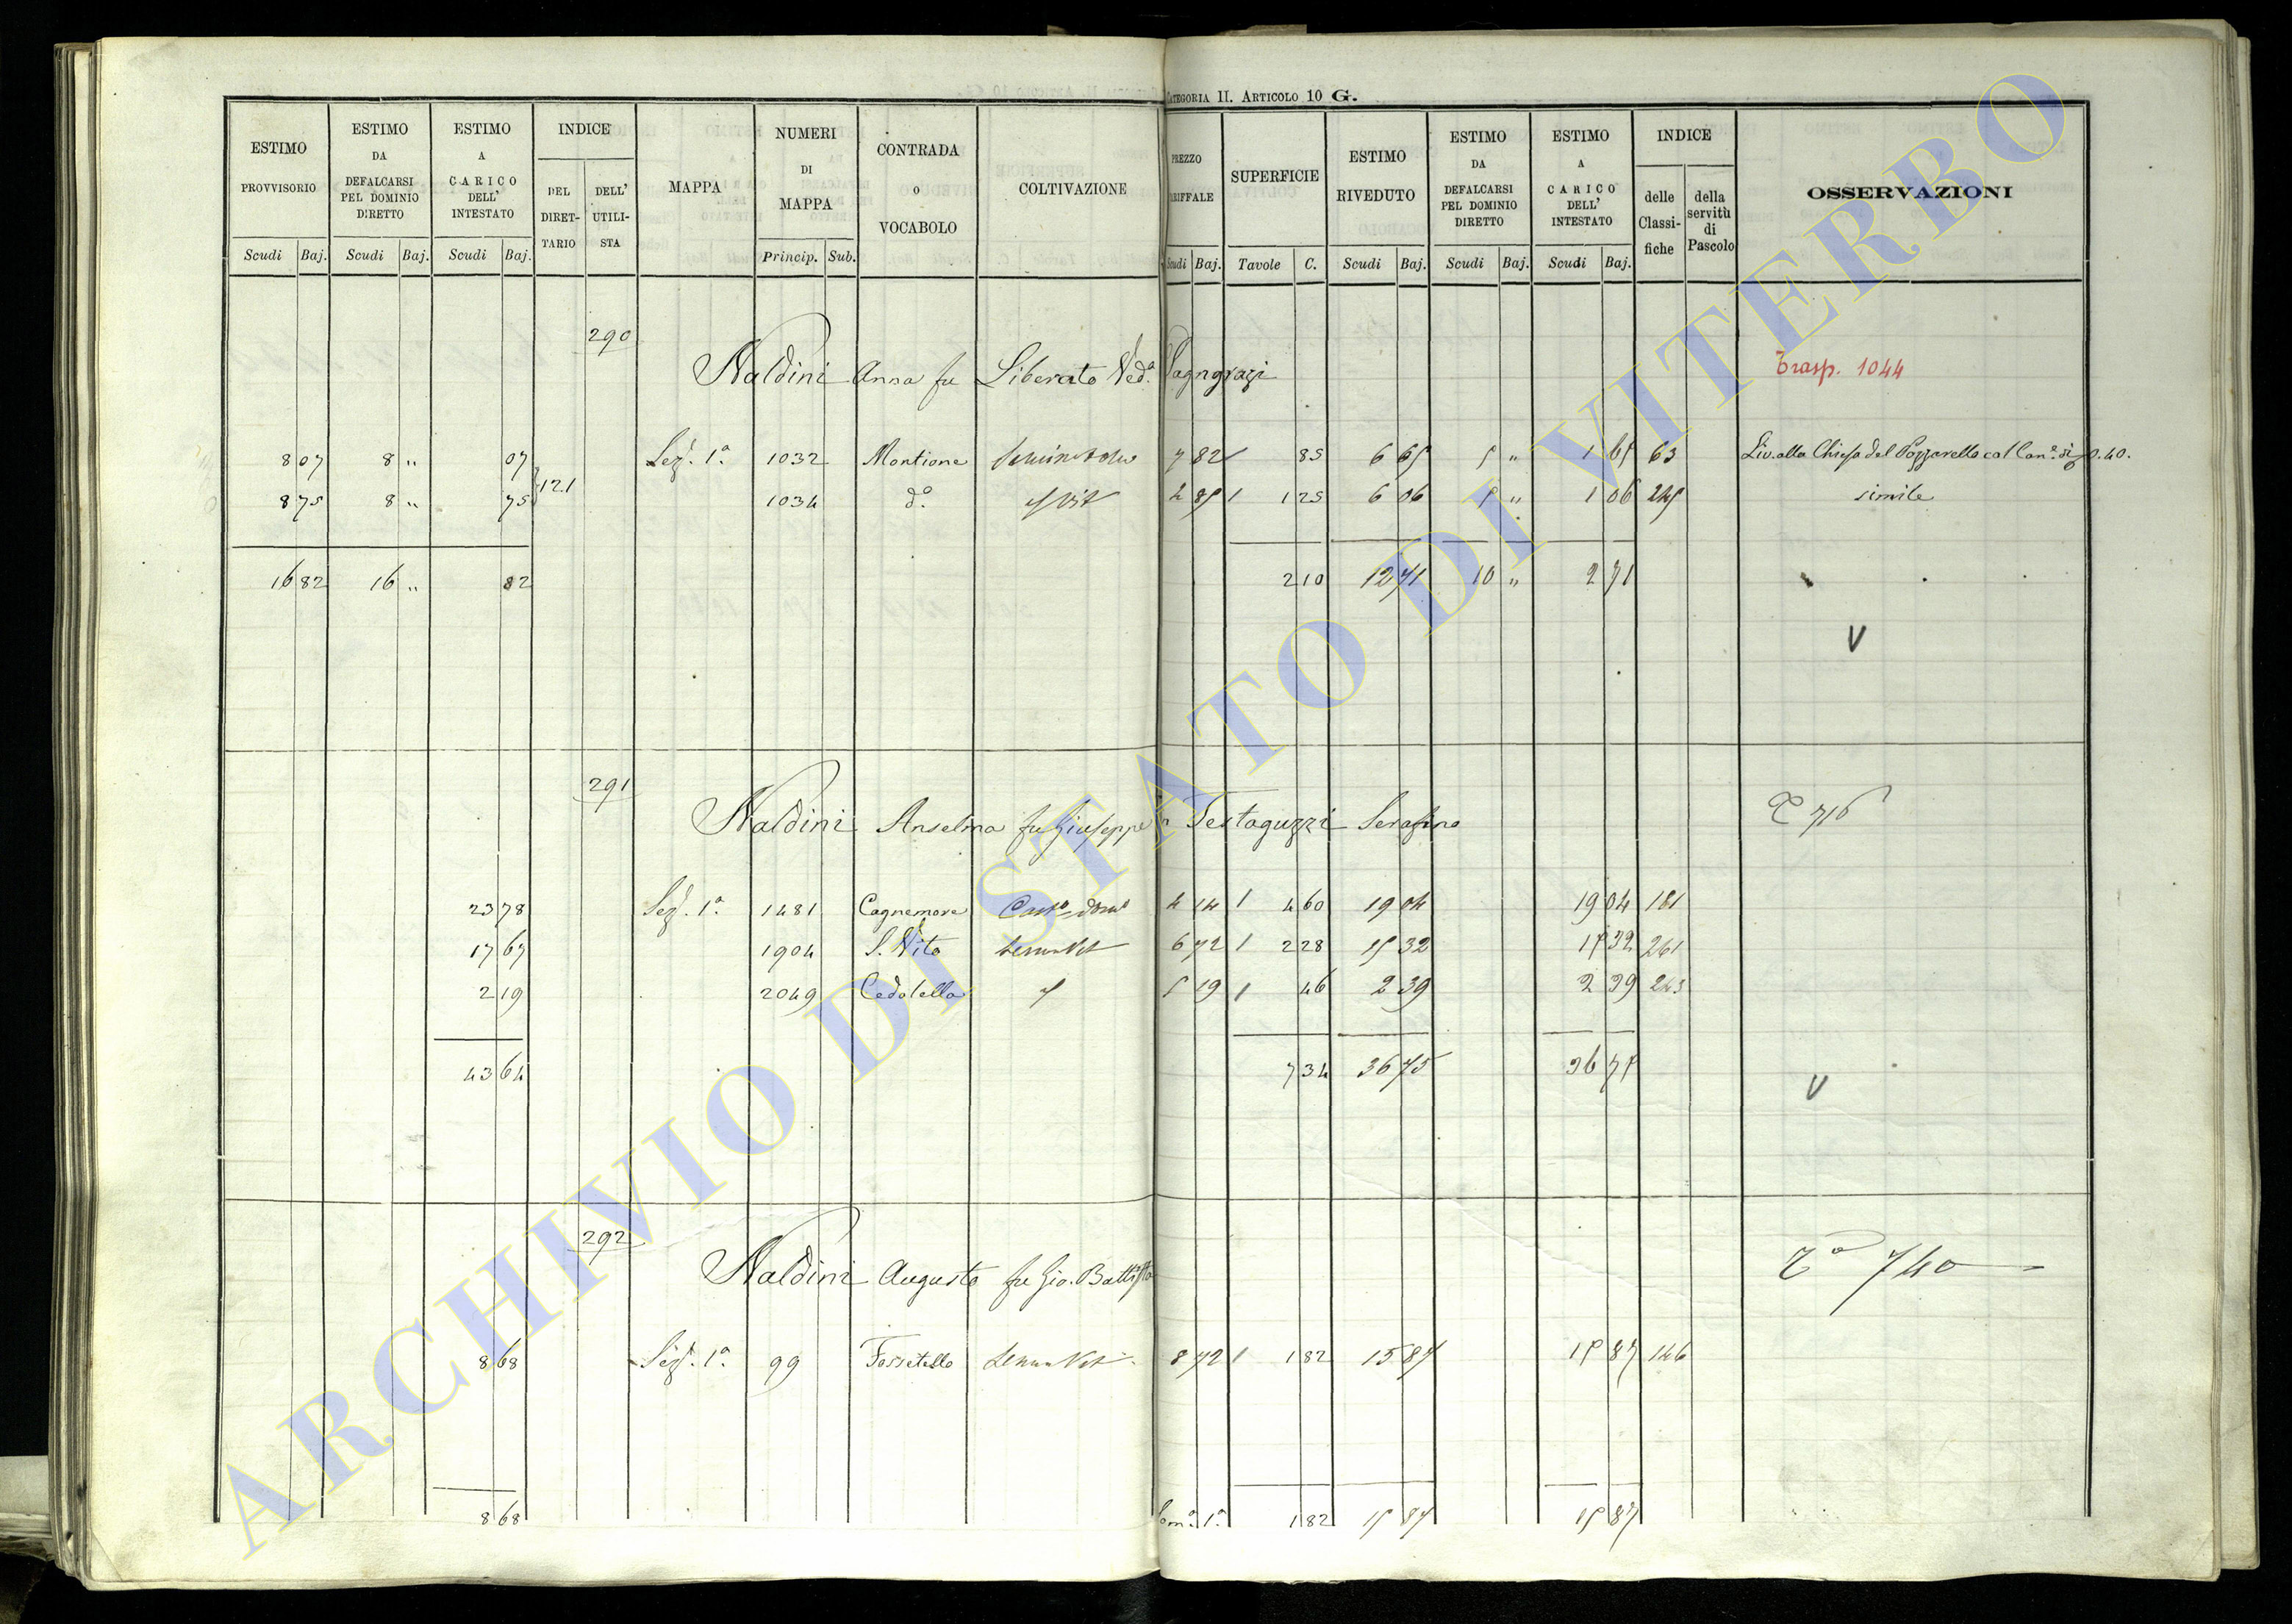 CATEGORIA II. ARTICOLO 10 G.
ESTIMO PROVVISORIO Scudi Baj.
ESTIMO DA DEFALCARSI PEL DOMINIO DIRETTO Scudi Baj.
ESTIMO A CARICO DELL' INTESTATO Scudi Baj.
INDICE DEL DIRETTARIO DELL' UTILISTA
MAPPA
NUMERI DI MAPPA Princip. Sub.
CONTRADA O VOCABOLO
COLTIVAZIONE
PREZZO TARIFFALE Scudi Baj.
SUPERFICIE Tavole C.
ESTIMO RIVEDUTO Scudi Baj.
ESTIMO DA DEFALCARSI PEL DOMINIO DIRETTO Scudi Baj.
ESTIMO A CARICO DELL' INTESTATO Scudi Baj.
INDICE delle Classifiche della servitù di Pascolo
OSSERVAZIONI
290
Naldini Anna fu Liberato Ved.ª Pagngrazi
Trasp. 1044
8 07 8 " 07 Sez. 1ª 1032 Montione 7 82 1 85 6 65 5 " 1 65 63 Liv. alla Chiesa del Pozzarello col Can.e di 0.40.
121
8 75 8 " 75 1034 d.º 4 85 1 1 25 6 06 5 " 1 06 245 simile
16 82 16 " 82 2 10 12 71 10 " 2 71
V
291
Naldini Anselma fu Giuseppe in Testaguzzi Serafino
T 716
23 78 Sez. 1ª 1481 Cagnemore 4 14 1 4 60 19 04 19 04 181
17 67 1904 S. Vito 6 72 1 2 28 15 32 15 32 261
2 19 2049 Cedolella 5 19 1 46 2 39 2 39 243
43 64 7 34 36 75 36 75
V
292
Naldini Augusto fu Gio. Battista
Tº 740
8 68 Sez. 1ª 99 Fossetello 8 72 1 1 82 15 87 15 87 146
8 68 Som.ª 1ª 1 82 15 87 15 87
ARCHIVIO DI STATO DI VITERBO